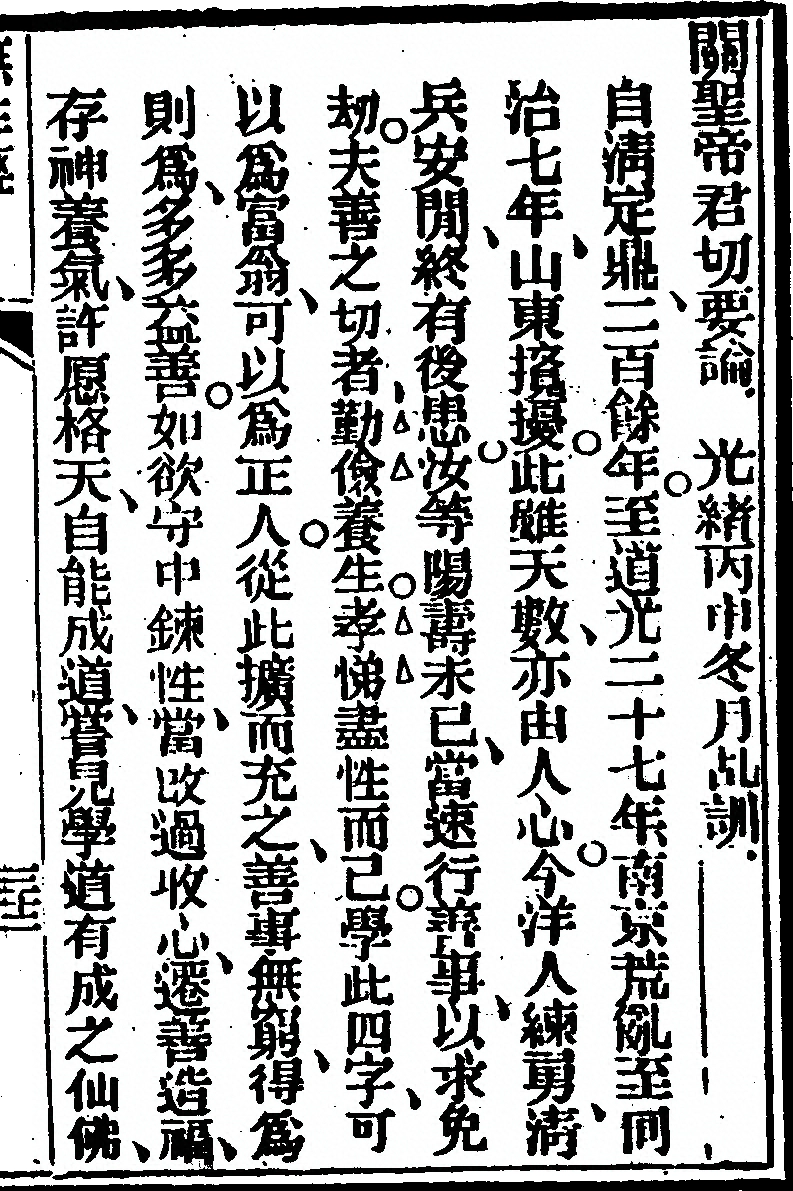 關聖帝君切要論 光緒丙申冬月乩訓
自清定鼎二百餘年至道光二十七年南京荒亂至同
治七年山東攪擾此雖天數亦由人心今洋人練勇清
兵安閒終有後患汝等陽壽未已當速行善事以求免
劫夫善之切者勤儉養生孝悌盡性而已學此四字可
以為富翁可以為正人從此擴而充之善事無窮得為
則為多多益善如欲守中鍊性當改過收心遷善造福
存神養氣許愿格天自能成道嘗見學道有成之仙佛